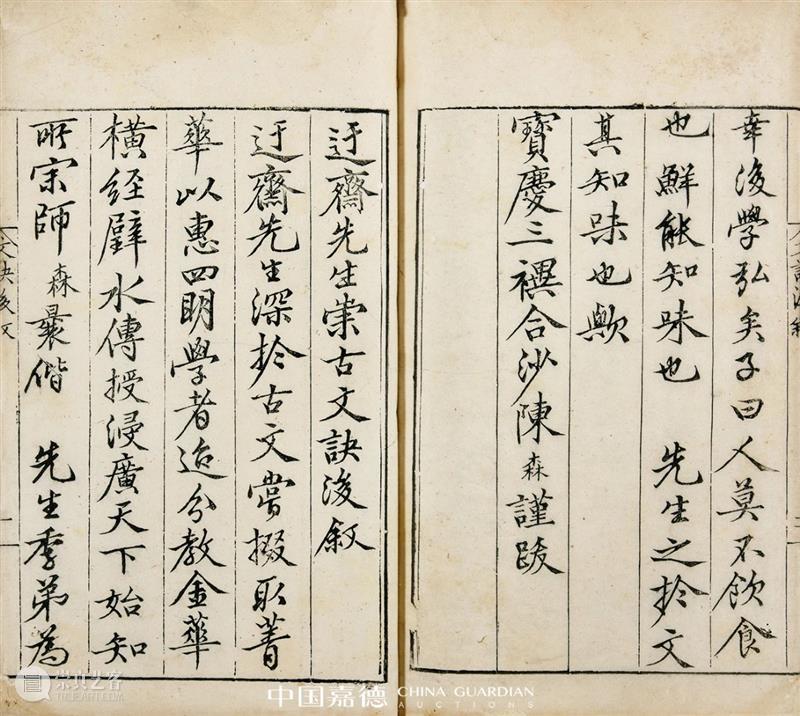 幸後學弘矣子曰人莫不飲食
也鮮能知味也 先生之於文
其知味也歟
寶慶三禩合沙陳森謹跋
迂齋先生崇古文訣後叙
迂齋先生深於古文嘗掇取菁
華以惠四明學者迨分教金華
橫經璧水傳授浸廣天下始知
所宗師森曩偕 先生季弟為
文訣後文
中国嘉德 CHINA GUARDIAN
AUCTIONS
崇真艺客